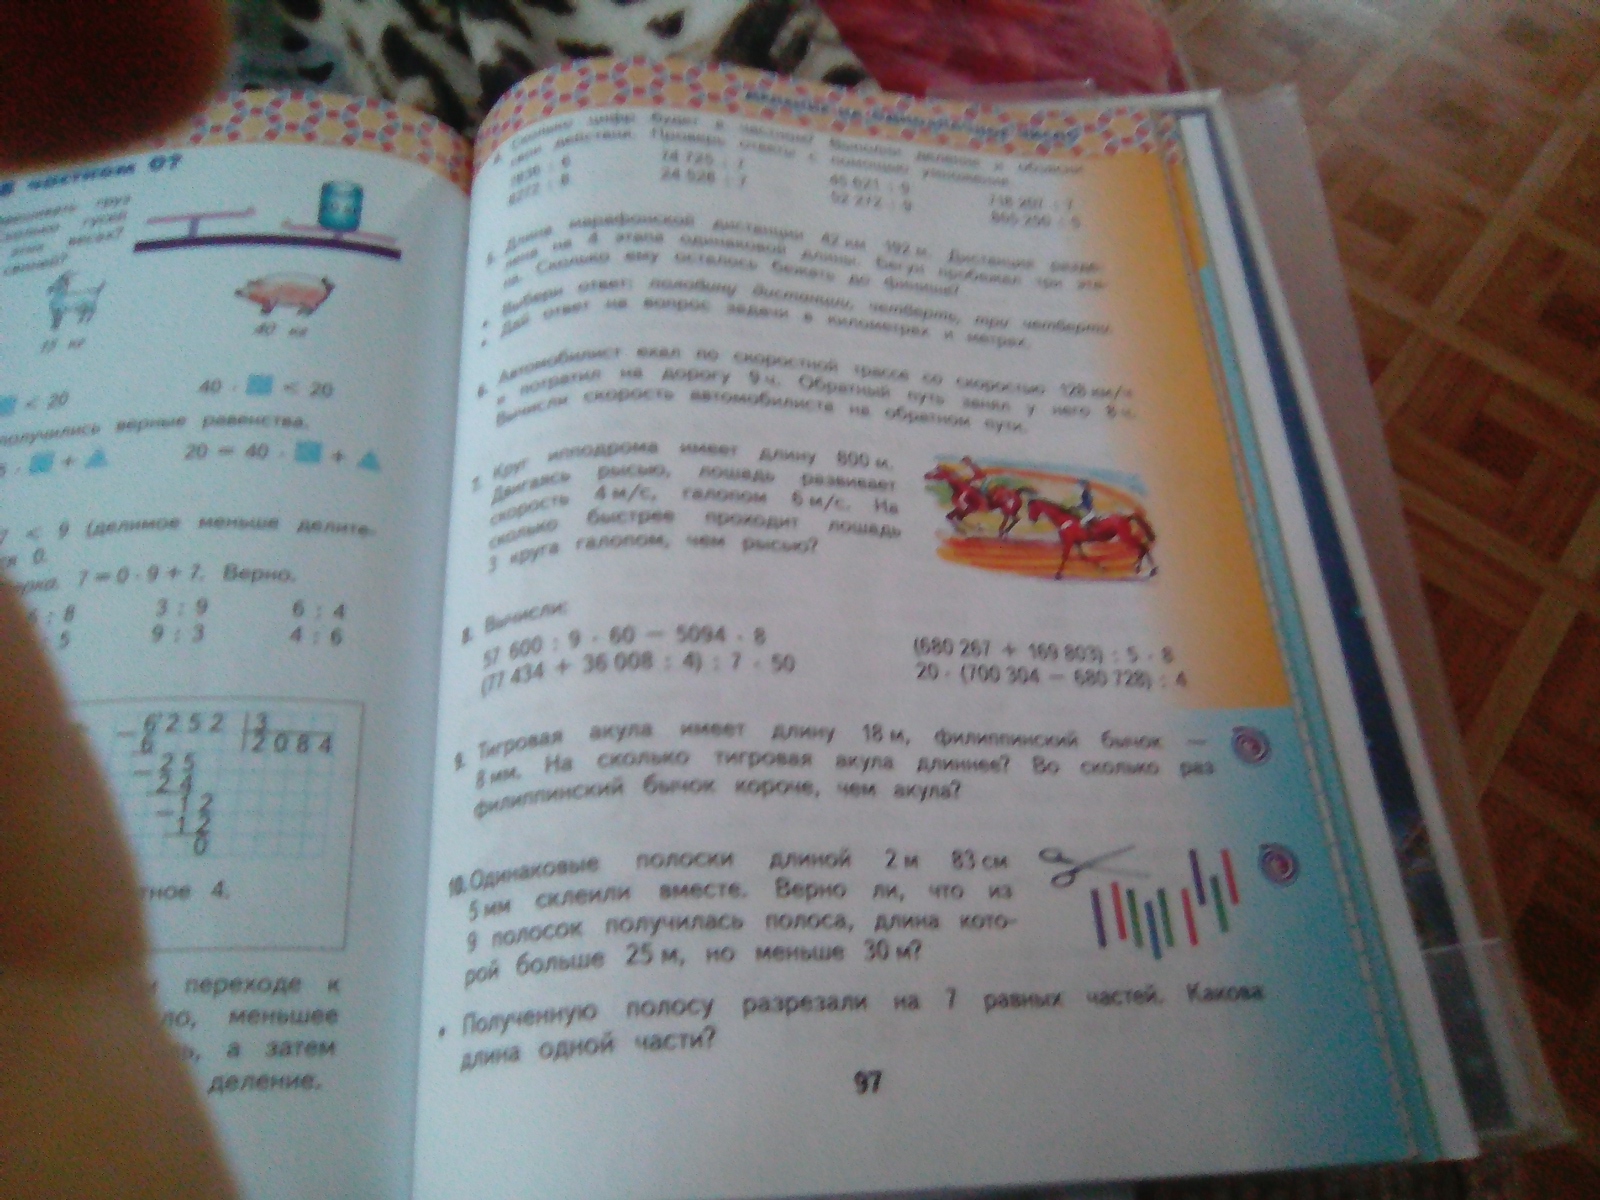 в частном 0?
15 кг
40 кг
< 20
40 · < 20
получились верные равенства.
5 · +
20 = 40 · +
7 < 9 (делимое меньше делите-
0.
7 = 0 · 9 + 7. Верно.
: 8 3 : 9 6 : 4
5 9 : 3 4 : 6
6252 3
6 2084
25
24
12
12
0
4.
переходе к
меньшее
а затем
деление.
4. Сколько цифр будет в частном? Выполни деление и объясни
свои действия. Проверь ответы с помощью умножения.
24 528 : 7
45 621 : 9
52 272 : 9
5. Длина марафонской дистанции 42 км 192 м. Дистанция разде-
лена на 4 этапа одинаковой длины. Бегун пробежал три эта-
па. Сколько ему осталось бежать до финиша?
• Выбери ответ: половину дистанции, четверть, три четверти.
• Дай ответ на вопрос задачи в километрах и метрах.
6. Автомобилист ехал по скоростной трассе со скоростью 128 км/ч
и потратил на дорогу 9 ч. Обратный путь занял у него 8 ч.
Вычисли скорость автомобилиста на обратном пути.
7. Круг ипподрома имеет длину 800 м.
Двигаясь рысью, лошадь развивает
скорость 4 м/с, галопом 6 м/с. На
сколько быстрее проходит лошадь
3 круга галопом, чем рысью?
8. Вычисли:
57 600 : 9 · 60 − 5094 · 8
(77 434 + 36 008 : 4) : 7 · 50
(680 267 + 169 803) : 5 · 8
20 · (700 304 − 680 728) : 4
9. Тигровая акула имеет длину 18 м, филиппинский бычок —
8 мм. На сколько тигровая акула длиннее? Во сколько раз
филиппинский бычок короче, чем акула?
10. Одинаковые полоски длиной 2 м 83 см
5 мм склеили вместе. Верно ли, что из
9 полосок получилась полоса, длина кото-
рой больше 25 м, но меньше 30 м?
• Полученную полосу разрезали на 7 равных частей. Какова
длина одной части?
97